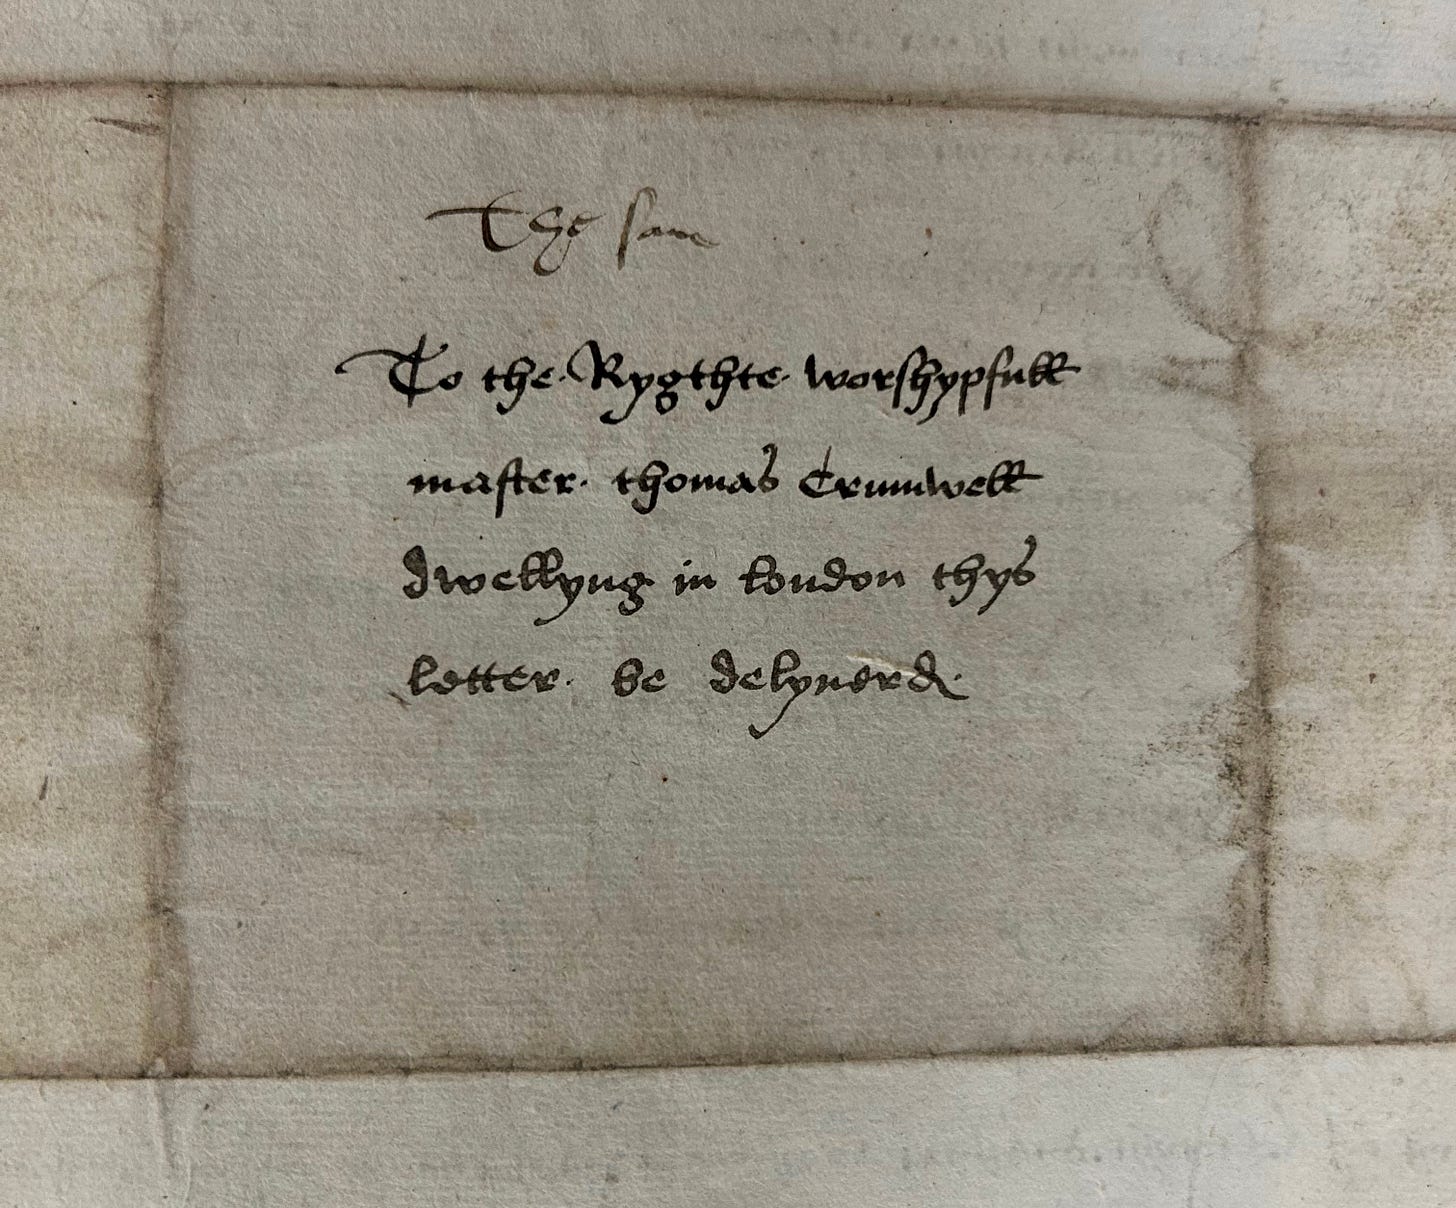 To the Rygthte worshypfull
master thomas Crumwell
dwellyng in london thys
letter be delyuerd